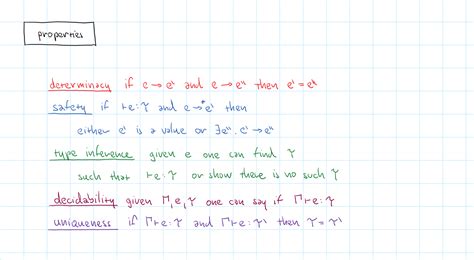 properties
determinacy if e → e' and e → e'' then e' = e''
safety if ⊢ e : τ and e →* e' then
either e' is a value or ∃e''. e' → e''
type inference given e one can find τ
such that ⊢ e : τ or show there is no such τ
decidability given Γ, e, τ one can say if Γ ⊢ e : τ
uniqueness if Γ ⊢ e : τ and Γ ⊢ e : τ' then τ = τ'